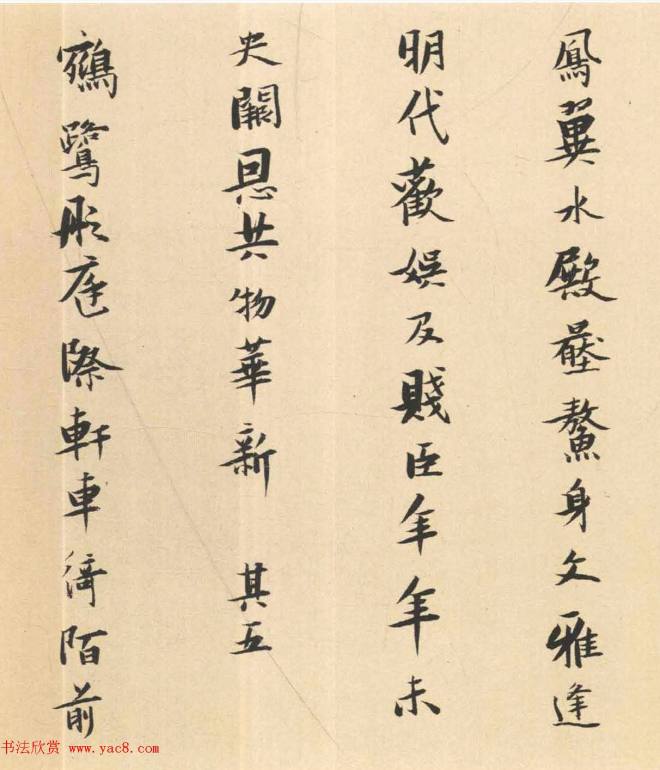 鳳翼水殿鰲身文雅逢
明代歡娛及賤臣年年未
央闕恩共物華新 其五
鵷鷺彤庭際軒車綺陌前
书法欣赏 www.yac8.com